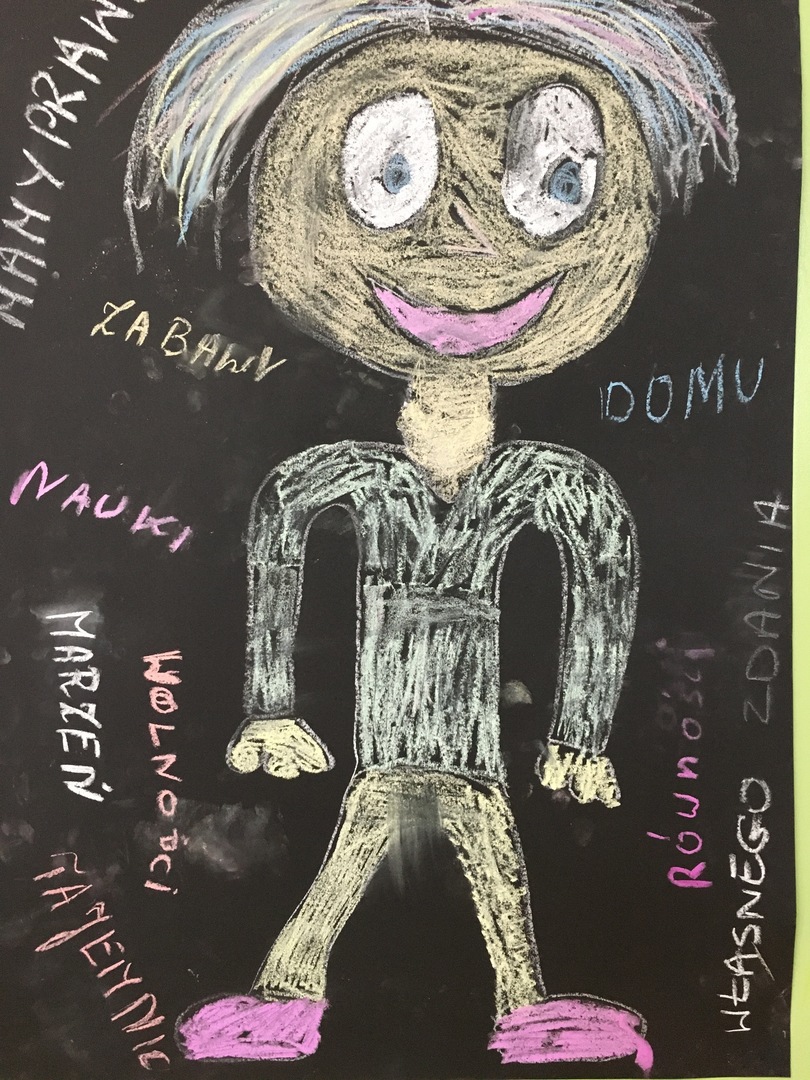 MAMY PRAW
ZABAWY
DOMU
NAUKI
MARZEŃ
WOLNOŚCI
RÓWNOŚCI
WŁASNEGO ZDANIA
TAJEMNIC